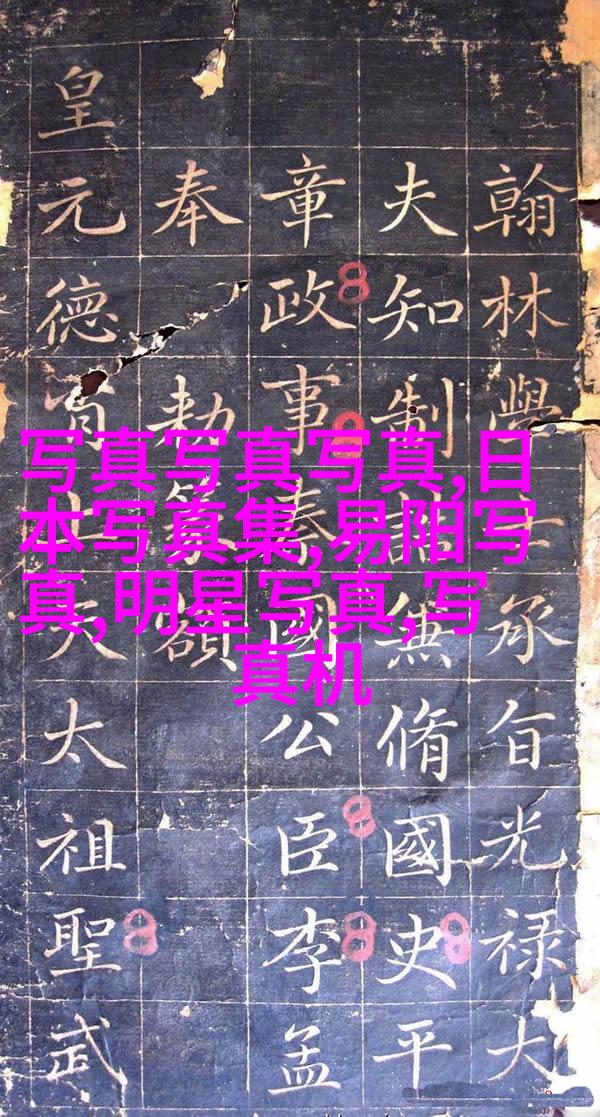 翰林學士承旨光禄大
夫知制誥兼脩國史平
章政事秦國公臣李孟
奉敕篆額
皇元德上天太祖聖武
写真写真写真,日
本写真集,易阳写
真,明星写真,写
真机